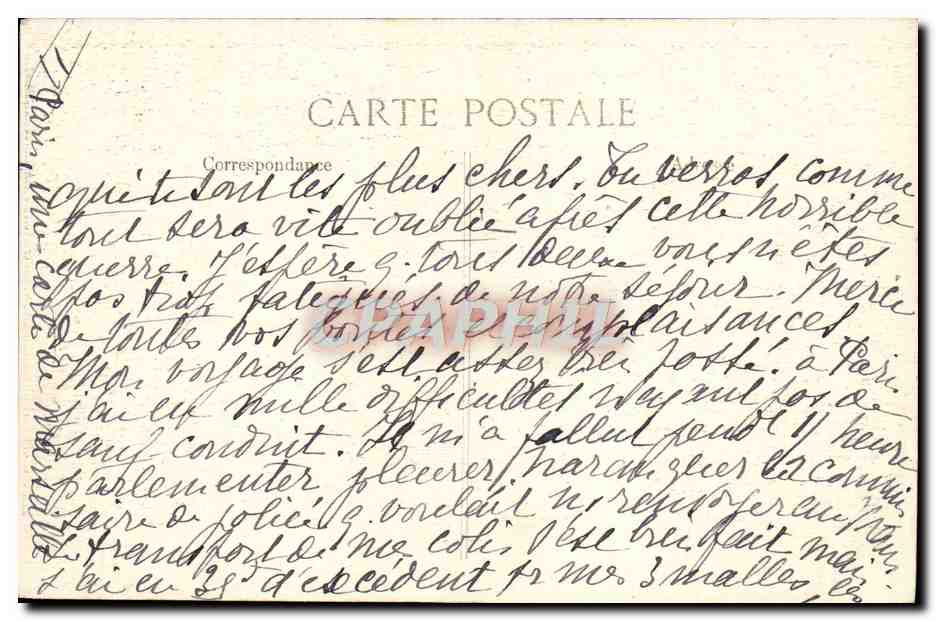 CARTE POSTALE
Correspondance
Adresse
qui te sont les plus chers. Tu verras comme
tout sera vite oublié après cette horrible
guerre. J'espère q. tous deux vous n'êtes
pas trop fatigués de notre séjour. Merci
de toutes vos bontés et complaisances
Mon voyage s'est assez bien passé. à Paris
j'ai eu mille difficultés n'ayant pas de
sauf conduit. Il m'a fallut pendt 1 heure
parlementer pleurer, haranguer le commis
saire de police q. voulait m'renvoyer
Le transport de me colis s'est bien fait mais
j'ai eu 39 d'excédent pr mes 3 malles, les
Paris, une carte de
CPAPHIL